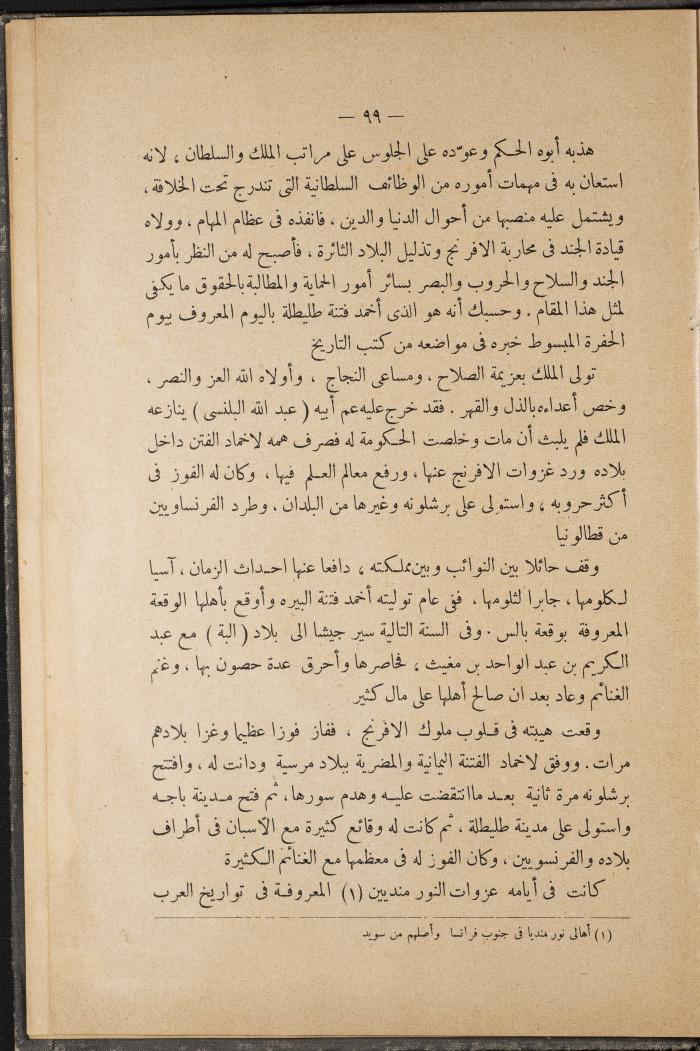 — ٩٩ —
هذبه أبوه الحكم وعوّده على الجلوس على مراتب الملك والسلطان ، لانه
استعان به فى مهمات أموره من الوظائف السلطانية التى تندرج تحت الخلافة ،
ويشتمل عليه منصبها من أحوال الدنيا والدين ، فانفذه فى عظام المهام ، وولاه
قيادة الجند فى محاربة الافرنج وتذليل البلاد الثائرة ، فأصبح له من النظر بأمور
الجند والسلاح والحروب والبصر بسائر أمور الحماية والمطالبة بالحقوق ما يكفى
لمثل هذا المقام . وحسبك أنه هو الذى أخمد فتنة طليطلة باليوم المعروف بيوم
الحفرة المبسوط خبره فى مواضعه من كتب التاريخ
تولى الملك بعزيمة الصلاح ، ومساعى النجاح ، وأولاه الله العز والنصر ،
وخص أعداءه بالذل والقهر . فقد خرج عليه عم أبيه ( عبد الله البلنسى ) ينازعه
الملك فلم يلبث أن مات وخلصت الحكومة له فصرف همه لاخماد الفتن داخل
بلاده ورد غزوات الافرنج عنها ، ورفع معالم العلم فيها ، وكان له الفوز فى
أكثر حروبه ، واستولى على برشلونه وغيرها من البلدان ، وطرد الفرنساويين
من قطالونيا
وقف حائلا بين النوائب وبين مملكته ، دافعا عنها احداث الزمان ، آسيا
لكلومها ، جابرا لثلومها ، ففى عام توليته أخمد فتنة البيره وأوقع بأهلها الوقعة
المعروفة بوقعة بالس . وفى السنة التالية سير جيشا الى بلاد ( البة ) مع عبد
الكريم بن عبد الواحد بن مغيث ، فحاصرها وأحرق عدة حصون بها ، وغنم
الغنائم وعاد بعد ان صالح أهلها على مال كثير
وقعت هيبته فى قلوب ملوك الافرنج ، ففاز فوزا عظيما وغزا بلادهم
مرات . ووفق لاخماد الفتنة اليمانية والمضرية ببلاد مرسية ودانت له ، وافتتح
برشلونه مرة ثانية بعد ما انتقضت عليه وهدم سورها ، ثم فتح مدينة باجه
واستولى على مدينة طليطلة ، ثم كانت له وقائع كثيرة مع الآسبان فى أطراف
بلاده والفرنسويين ، وكان الفوز له فى معظمها مع الغنائم الكثيرة
كانت فى أيامه عزوات النور منديين (١) المعروفة فى تواريخ العرب
(١) أهالى نور منديا فى جنوب فرانسا وأصلهم من سويد